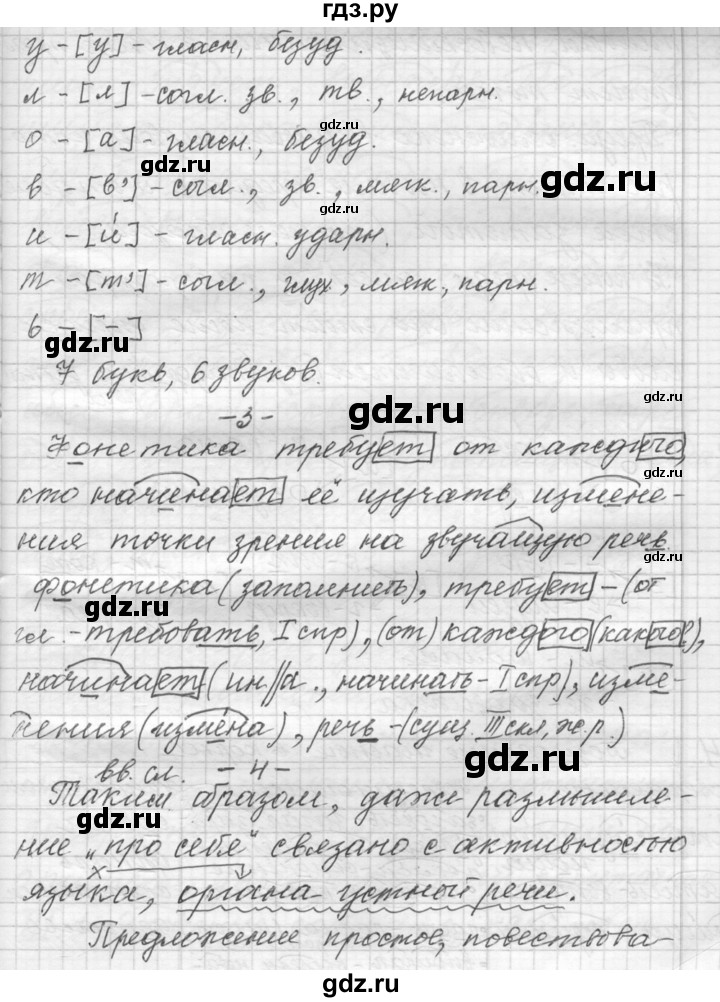 гдз.ру
у – [у] – гласн, безуд.
л – [л] – согл. зв., тв., непарн.
gdz.ru
о – [а] – гласн., безуд.
gdz.ru
gdz.ru
в – [в'] – согл., зв., мягк., парн.
gdz.ru
и – [и́] – гласн. ударн.
т – [т'] – согл., глух, мягк, парн.
ь – [–]
gdz.ru
7 букв, 6 звуков.
gdz.ru
gdz.ru
– 3 –
Фонетика требует от каждого,
кто начинает её изучать, измене-
gdz.ru
ния точки зрения на звучащую речь
фонетика (запомнить), требует – (от
gdz.ru
gdz.ru
гл. – требовать, I спр), (от) каждого (какого?),
начинает – (ин//а., начинать – I спр), изме-
нения (измена), речь – (сущ. III скл, ж.р.)
вв. сл. – 4 –
gdz.ru
Таким образом, даже размышле-
gdz.ru
ние „про себя“ связано с активностью
языка, органа устный речи.
gdz.ru
gdz.ru
Предложение простое, повествова-
gdz.ru